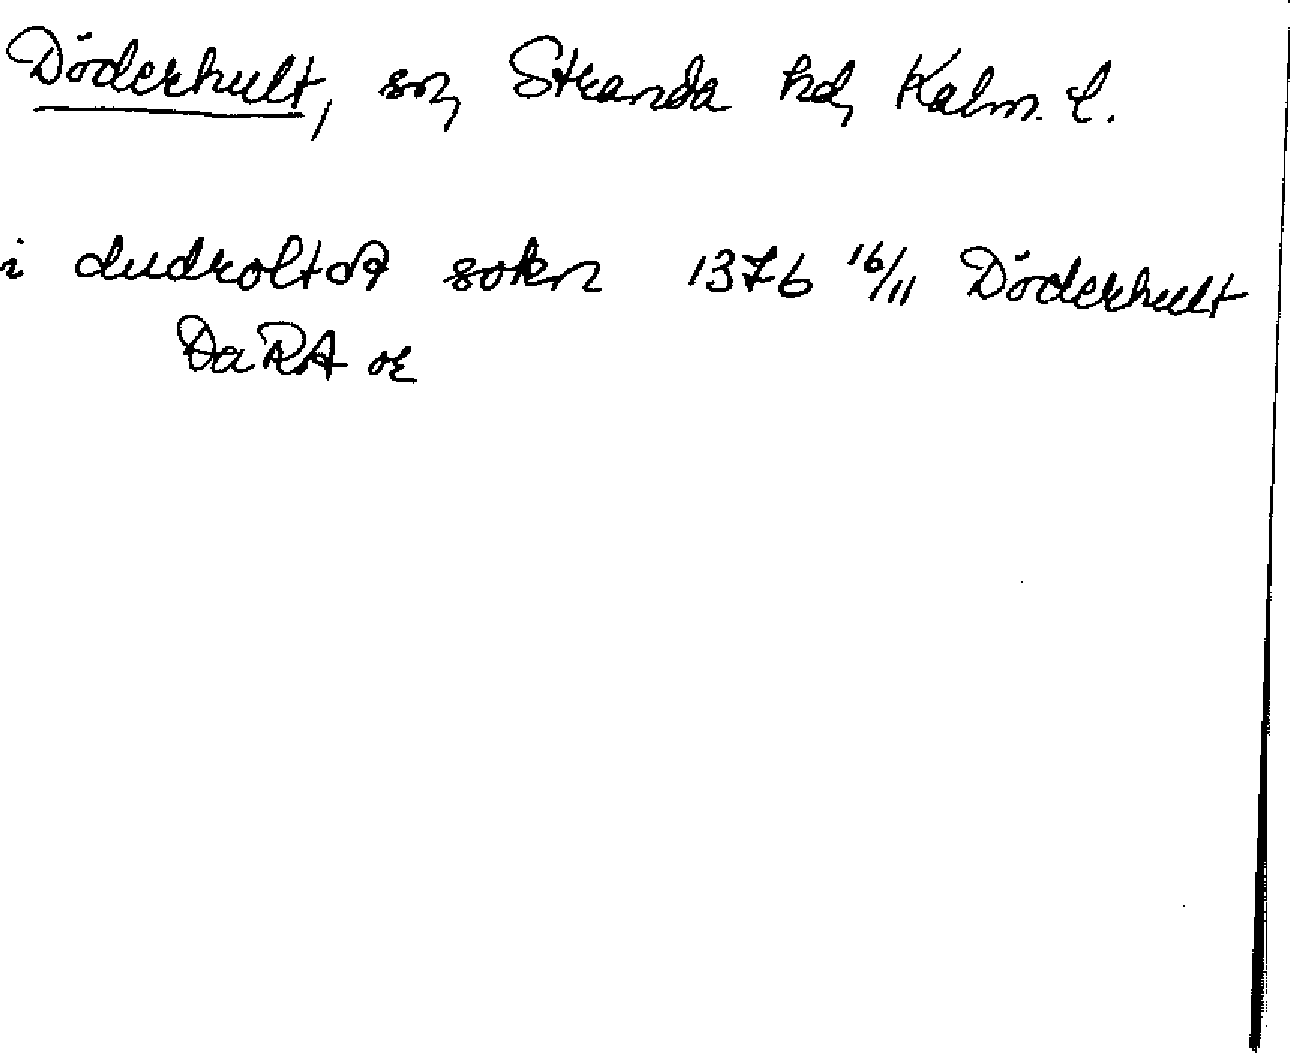 Döderhult, sn, Stranda hd, Kalm. l.
i dudroltæ sokn 1376 16/11 Döderhult
DaRA or